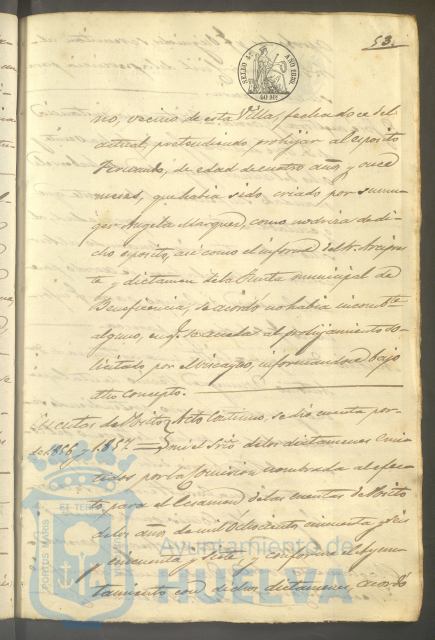 53.
SELLO 4º AÑO 1858.
40 Ms
no, vecino de esta Villa, fechado doce del
actual, pretendiendo prohijar al espósito
Fernando, de edad de cuatro años y once
meses, que habia sido criado por su mu-
ger Angela Marquez, como nodriza de di-
cho espósito, asi como el informe del Sr. Arcipres-
te y dictamen de la Junta municipal de
Beneficencia, se acordó no habia inconvte
alguno, en q. se acceda al prohijamiento so-
licitado por el Vizcayno, informandose bajo
dho concepto.
Cuentas de Pósito
de 1856 y 1857
Acto Continuo, se dio cuenta por
mi el Srio de los dictamenes emi-
tidos por la Comision nombrada al efec-
to para el Ecsamen de las cuentas de Pósito
de los años de mil ochocientos cincuenta y seis
y cincuenta y siete, y conforme el Ayun-
tamiento con dichos dictamenes, acordó
PORTUS MARIS ET TERRE CUSTODIA
Ayuntamiento de
HUELVA